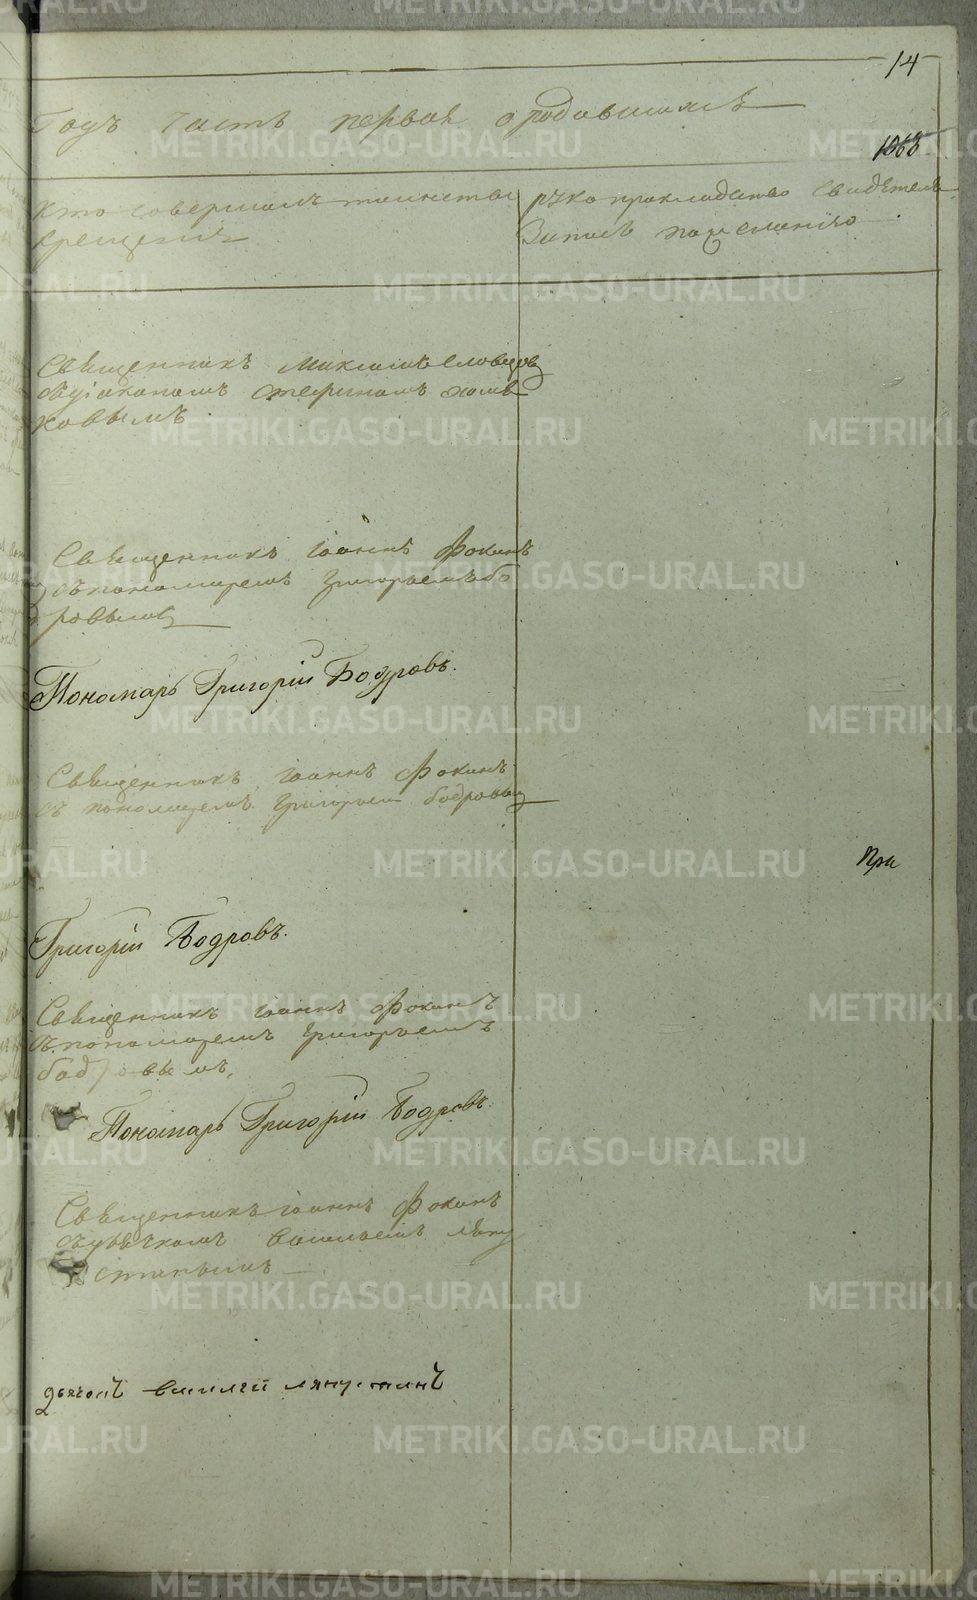 14
Годъ часть первая о родившихся
1068
Кто совершалъ таинство
крещенія
рукоприкладство свидетелей
записи по желанію
Священникъ Михаилъ Словцов
съ діакономъ Стефаномъ
ковымъ
Священникъ Іоаннъ Фокинъ
съ пономаремъ Григорьемъ Бо
дровымъ
Пономарь Григорій Бодровъ.
Священникъ Іоаннъ Фокинъ
съ пономаремъ Григорьем Бодровым
При
Григорій Бодровъ.
Священникъ Іоаннъ Фокинъ
съ пономаремъ Григорьемъ
Бодровымъ.
Пономарь Григорій Бодровъ.
Священникъ Іоаннъ Фокинъ
съ дьячкомъ Васильемъ Ляпу
стинымъ
дьячокъ Василей Ляпустинъ
METRIKI.GASO-URAL.RU